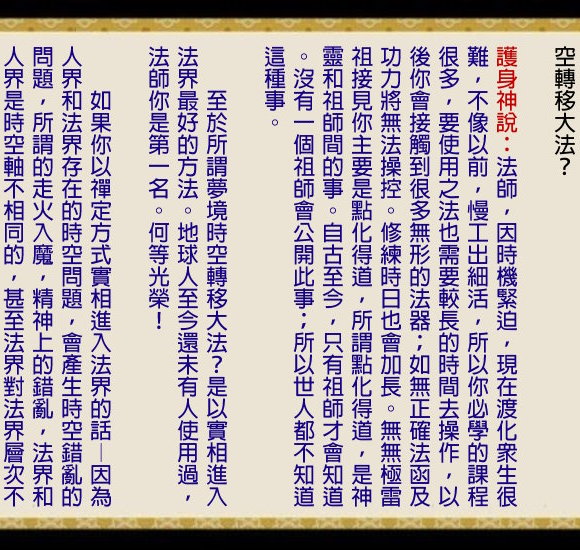 空轉移大法？
護身神說：法師，因時機緊迫，現在渡化衆生很
難，不像以前，慢工出細活，所以你必學的課程
很多，要使用之法也需要較長的時間去操作，以
後你會接觸到很多無形的法器；如無正確法函及
功力將無法操控。修練時日也會加長。無無極雷
祖接見你主要是點化得道，所謂點化得道，是神
靈和祖師間的事。自古至今，只有祖師才會知道
。沒有一個祖師會公開此事；所以世人都不知道
這種事。
至於所謂夢境時空轉移大法？是以實相進入
法界最好的方法。地球人至今還未有人使用過，
法師你是第一名。何等光榮！
如果你以禪定方式實相進入法界的話—因為
人界和法界存在的時空問題，會產生時空錯亂的
問題，所謂的走火入魔，精神上的錯亂，法界和
人界是時空軸不相同的，甚至法界對法界層次不